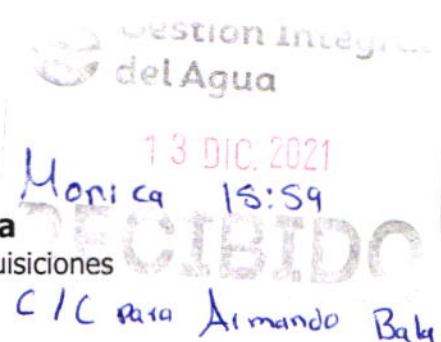 Gestión Integral
del Agua
13 DIC. 2021
Monica 15:59
RECIBIDO
uisiciones
C/C para Armando Bala